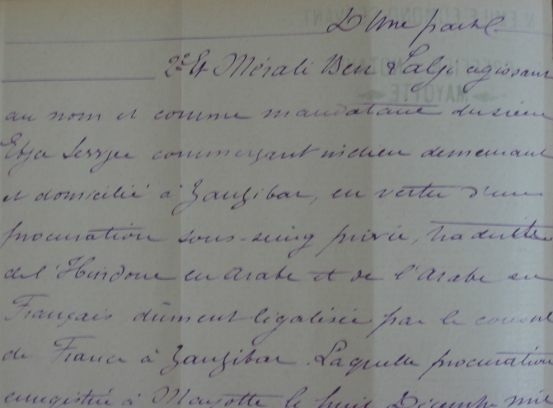 D'Une part.
2º Et Mérali Ben Lalji agissant
au nom et comme mandataire du sieur
commerçant indien demeurant
et domicilié à Zanzibar, en vertu d'une
procuration sous-seing privé, traduite
de l'Hindoue en Arabe et de l'Arabe en
Français dûment légalisée par le consul
de France à Zanzibar. Laquelle procuration
enregistrée à Mayotte le huit Décembre mil